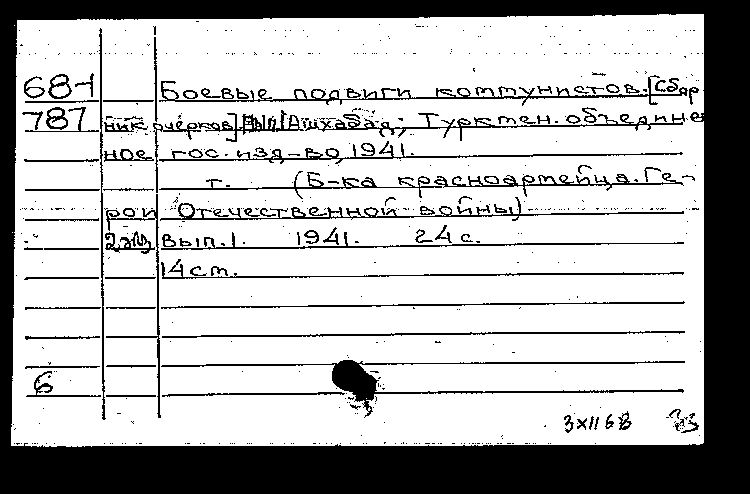 68-1 Боевые подвиги коммунистов. [Сбор
787 ник очерков]. Вып. 1 Ашхабад; Туркмен. объединен
ное гос. изд-во, 1941.
т. (Б-ка красноармейца. Ге-
рои Отечественной войны)
2 экз Вып. 1. 1941. 24 с.
14 cm.
6
3 XII 68